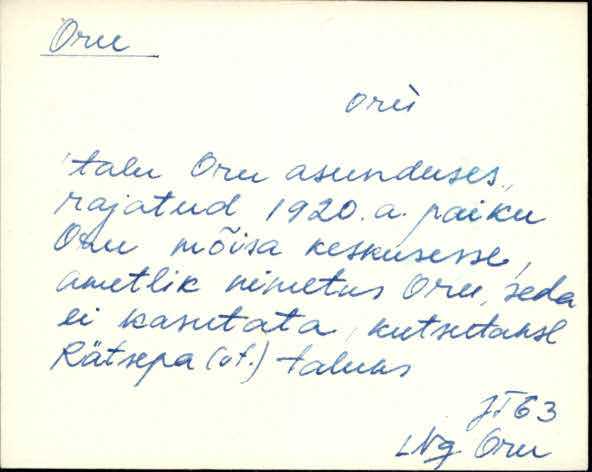 Oru
orù
talu Oru asunduses,
rajatud 1920.a. paiku
Oru mõisa keskusesse,
ametlik nimetus Oru, seda
ei kasutata, kutsutakse
Rätsepa (vt.) taluks
JT 63
LNg Oru